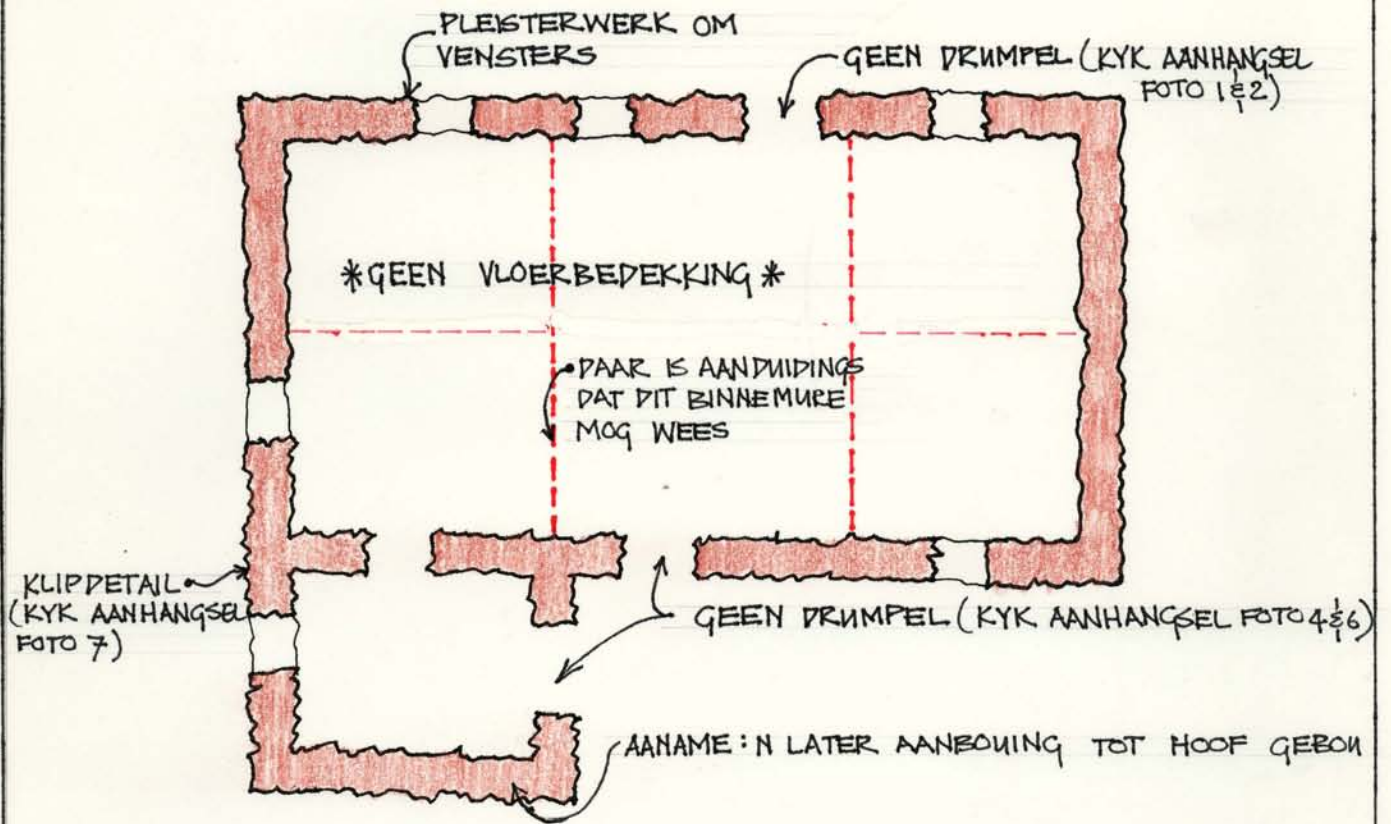 PLEISTERWERK OM
VENSTERS
GEEN DRUMPEL (KYK AANHANGSEL
FOTO 1 & 2)
*GEEN VLOERBEDEKKING*
DAAR IS AANDUIDINGS
DAT DIT BINNEMURE
MOG WEES
KLIPDETAIL
(KYK AANHANGSEL
FOTO 7)
GEEN DRUMPEL (KYK AANHANGSEL FOTO 4 & 6)
AANAME: N LATER AANBOUING TOT HOOF GEBOU